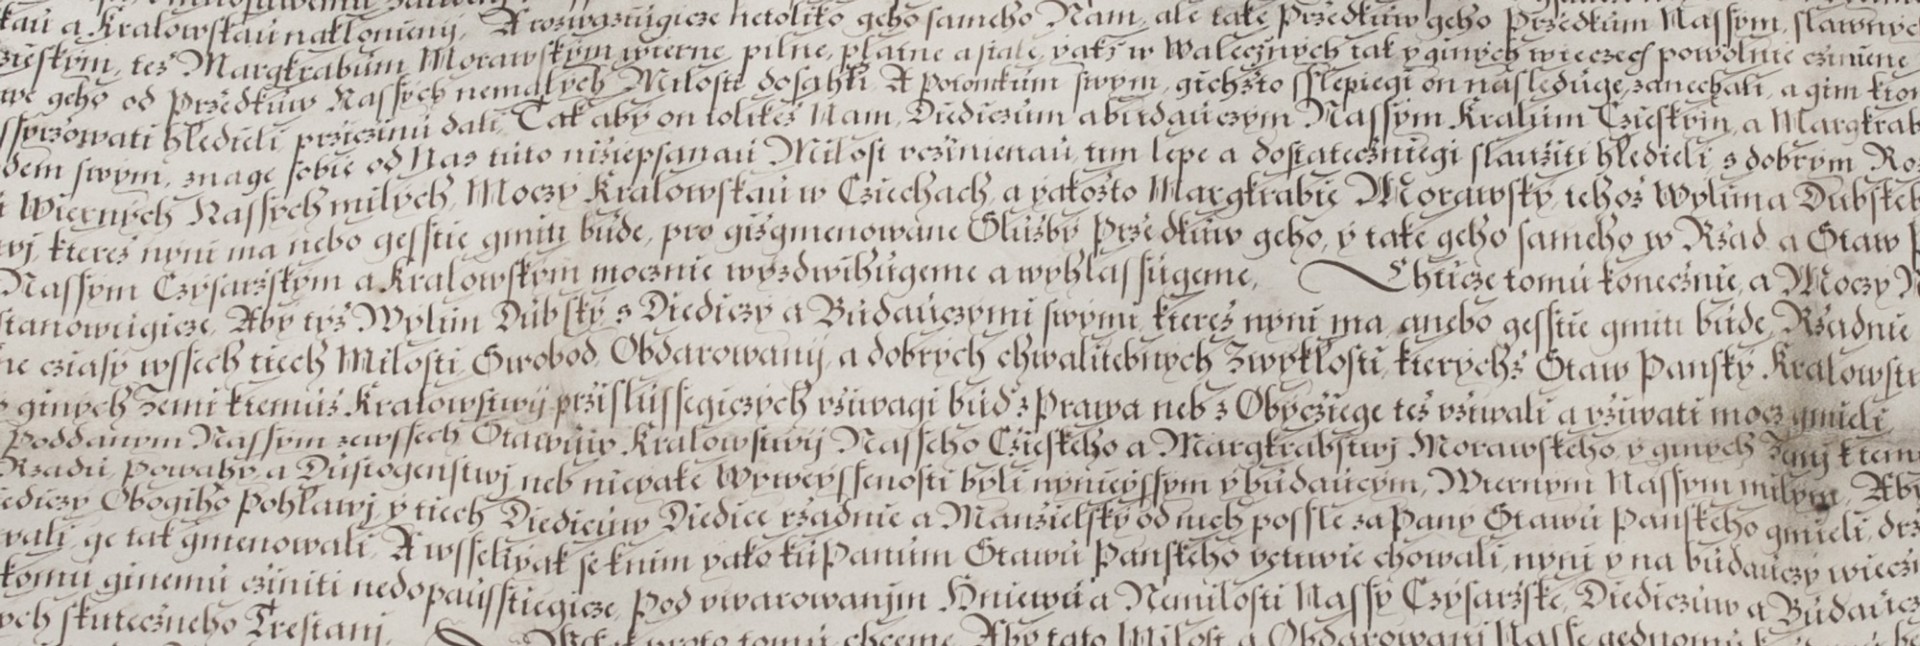 kau a Kralowskau naklonienij, A rozwazugicze netoliko geho sameho Nam, ale take Przedkuw geho Przedkum Nassym, slawnych
Czieskym, tez Margkrabum Morawskym wierne, pilne, platne a stale, yak w Walecznych tak y ginych wieczech powolnie cziniene
geho od Przedkuw Nassych nemalych Milosti dosahli, A potomkum swym, gichzto sslepiegi on nasleduge, zanechali, a gim
hledieli, prziczinu dali, Tak aby on tolikez Nam, Diediczum a budauczym Nassym Kralum Czieskym, a Margkrab
dem swym, znage sobie od Nas tuto nizepsanau Milost vczinienau, tim lepe a dostateczniegi slauziti hledieli, s dobrym Ro
Wiernych Nassych milych, Moczy Kralowskau w Cziechach, a yakozto Margkrabie Morawsky, tehoz Wylima Dubskeh
kterez nyni ma nebo gesstie gmiti bude, pro gizgmenowane Sluzby Przedkuw geho, y take geho sameho w Rzad a Staw
Nassym Czysarzskym a Kralowskym mocznie wyzdwihugeme a wyhlassugeme, Chticze tomu konecznie, a Moczy
stanowugicze, Aby tyz Wylim Dubsky s Diediczy a Budauczymi swymi, kterez nyni ma, anebo gesstie gmiti bude, Rzadnie
cziasy wssech tiech Milosti Swobod, Obdarowanij, a dobrych chwalitebnych Zwyklosti, kterychz Staw Pansky Kralowstw
ginych Zemi k temuz Kralowstwij przislussegiczych vziwagi bud z Prawa neb z Obycziege tez vziwali a vziwati mocz gmieli,
Poddanym Nassym zewssech Stawuw Kralowstwij Nasseho Czieskeho a Margkrabstwj Morawskeho, y ginych Zemj k tem
Rzadu, Powahy, a Dustogenstwj neb niegake Wyweyssenosti byli nynieyssym y budaucym, Wiernym Nassym milym, Aby
Diediczy Obogiho Pohlawj, y tiech Diedicuw Diedice rzadnie a Manzielsky od nich possle za Pany Stawu Panskeho gmieli, drz
wali, ge tak gmenowali, A wsselijak se k nim yako ku Panum Stawu Panskeho vctiwie chowali, nyni y na budauczy wieczn
komu ginemu cziniti nedopausstiegicze, Pod vwarowanjm Hniewu a Nemilosti Nassy Czysarzske, Diediczuw a Budaucz
ych skuteczneho Trestanj,
proto tomu chceme, Aby tato Milost a Obdarowani Nasse gednomu